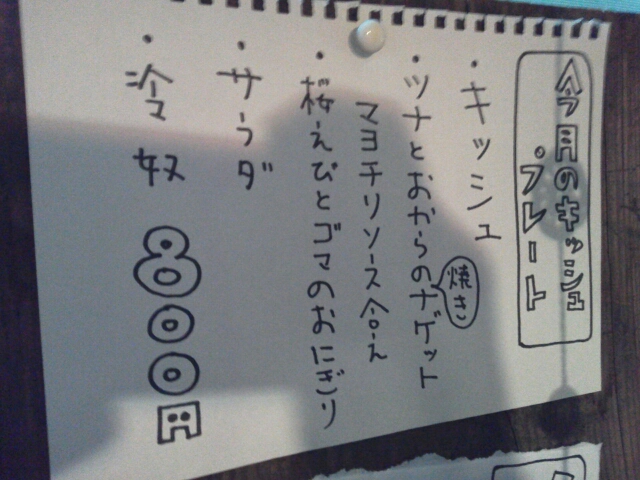 今月のキッシュ
プレート
・キッシュ
・ツナとおからのナゲット
焼き
マヨチリソース合え
・桜えびとゴマのおにぎり
・サラダ
・冷奴 800円